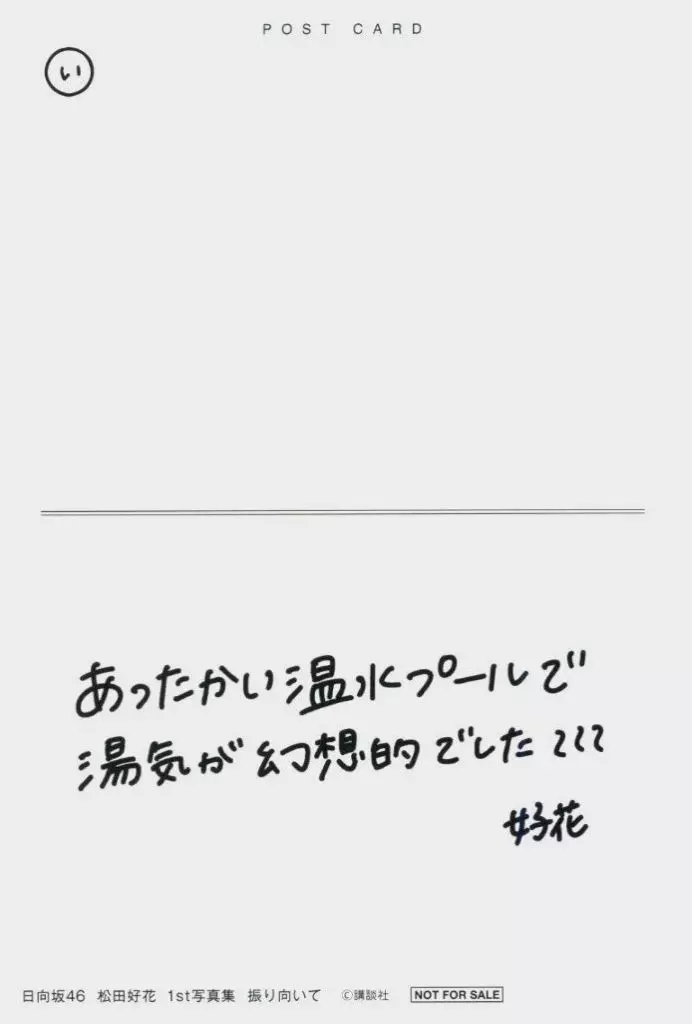 POST CARD
い
あったかい温水プールで
湯気が幻想的でした⌇⌇⌇
好花
日向坂46 松田好花 1st写真集 振り向いて ©講談社 NOT FOR SALE